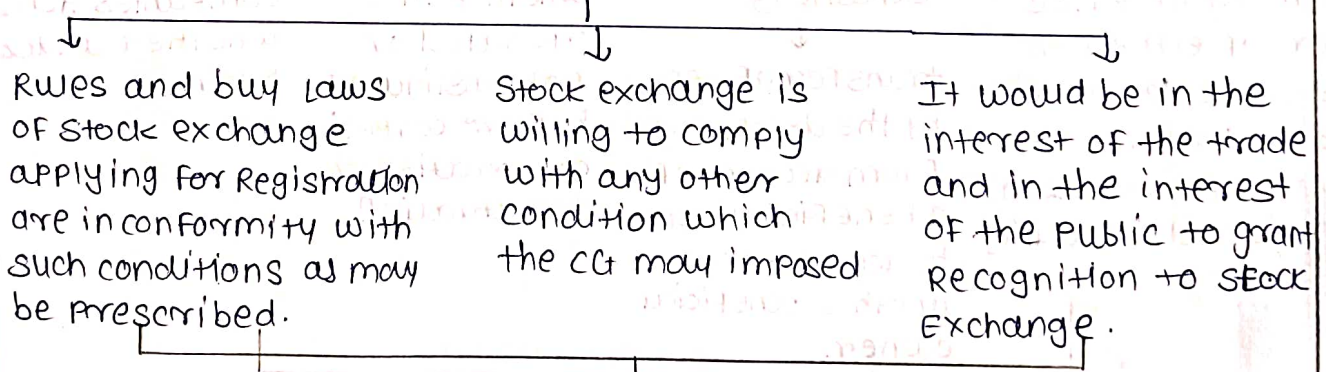 Rules and buy Laws
of Stock exchange
applying for Registration
are in conformity with
such conditions as may
be prescribed.
Stock exchange is
willing to comply
with any other
condition which
the CG may imposed
It would be in the
interest of the trade
and in the interest
of the public to grant
Recognition to Stock
Exchange.